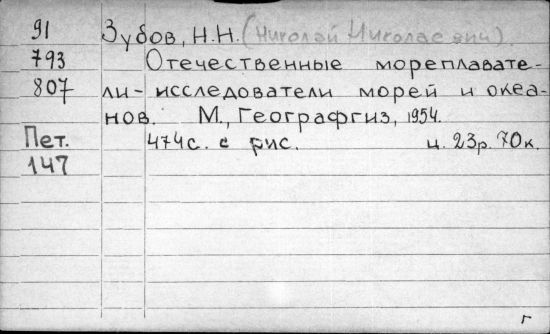 91 Зубов, Н.Н. (Николай Николаевич)
793 Отечественные мореплавате-
807 ли-исследователи морей и океа-
нов. М., Географгиз, 1954.
Пет. 474с. с рис. ц. 23р. 70к.
147
г